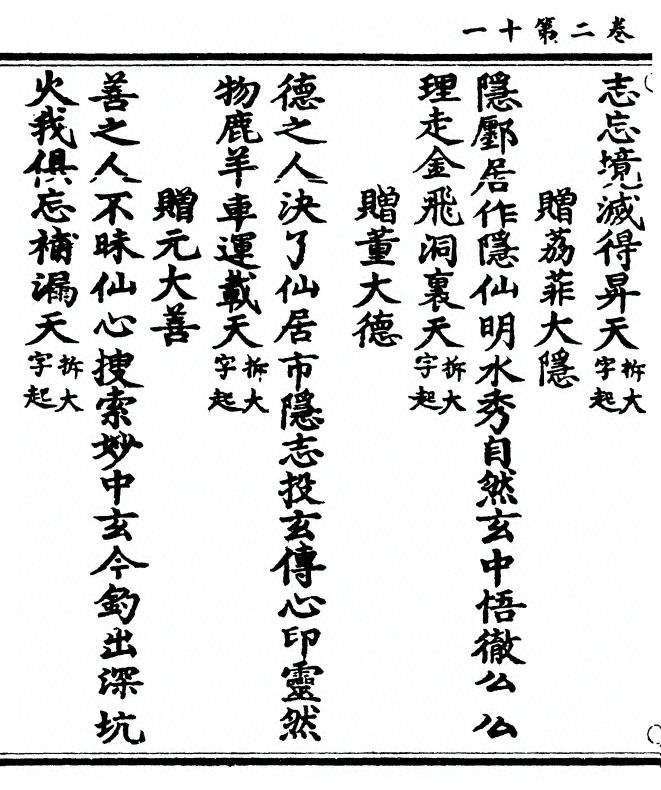 卷二第十一
志忘境滅得昇天拆大字起
贈荔菲大隱
隱酆居作隱仙明水秀自然玄中悟徹厶厶
理走金飛洞裏天拆大字起
贈董大德
德之人決了仙居市隱志投玄傳心印靈然
物鹿羊車運載天拆大字起
贈元大善
善之人不昧仙心搜索妙中玄今釣出深坑
火我俱忘補漏天拆大字起